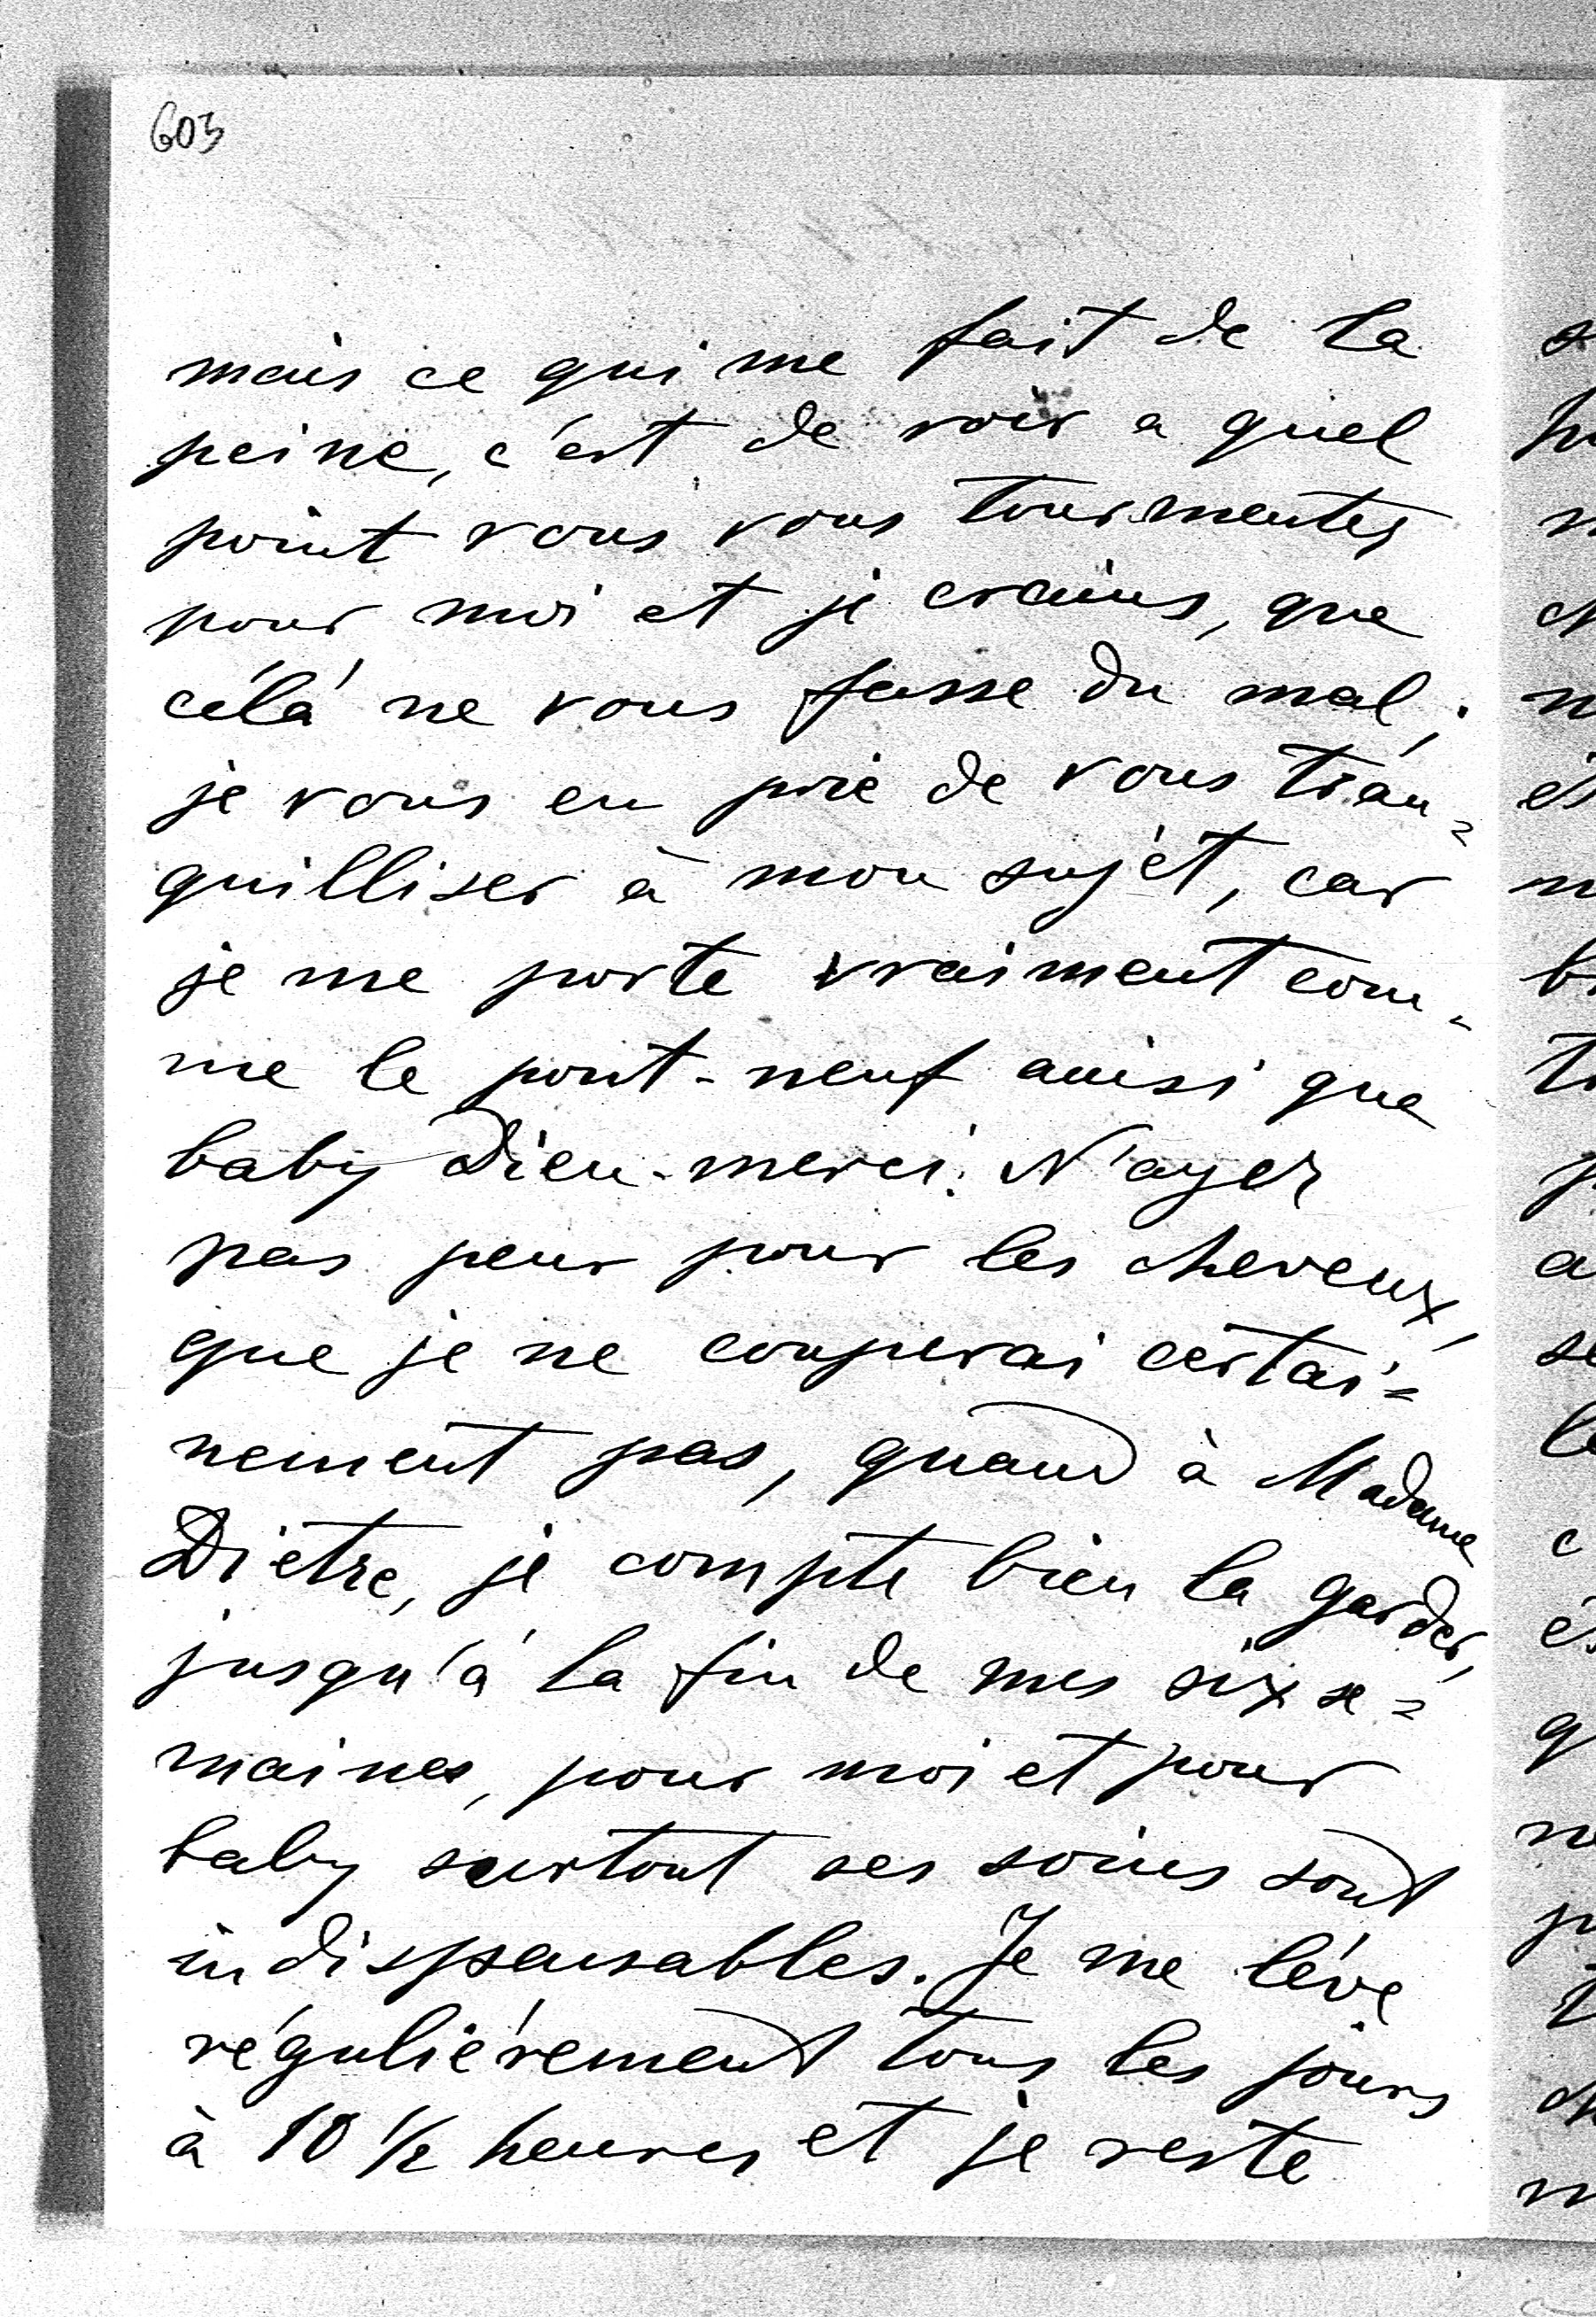 603
mais ce qui me fait de la
peine, c'est de voir a quel
point vous vous tourmentez
pour moi et je crains, que
célà ne vous fasse du mal;
je vous en prie de vous tran=
quilliser à mon sujet, car
je me porte vraiment com=
me le pont-neuf ainsi que
baby Dieu-merci. N'ayez
pas peur pour les cheveux,
que je ne couperai certai=
nement pas, quand à Madame
Diètre, je compte bien la garder,
jusqu'à la fin de mes six se=
maines, pour moi et pour
baby surtout ses soins sont
indispensables. Je me léve
réguliérement tous les jours
à 10 1/2 heures et je reste